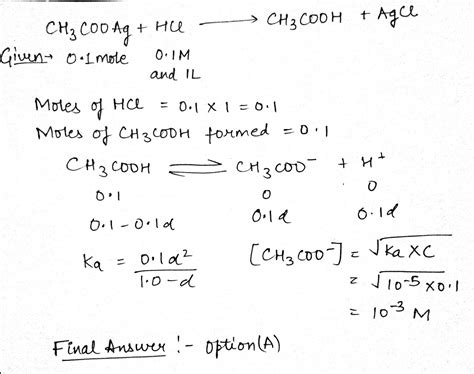 CH3COOAg + HCl ⟶ CH3COOH + AgCl
Given→ 0.1mole 0.1M
and 1L
Moles of HCl = 0.1 × 1 = 0.1
Moles of CH3COOH formed = 0.1
CH3COOH ⇌ CH3COO⁻ + H⁺
0.1 0 0
0.1-0.1α 0.1α 0.1α
Ka = 0.1α²/1.0-α [CH3COO⁻] = √Ka×C
= √10⁻⁵×0.1
= 10⁻³ M
Final Answer :- option(A)